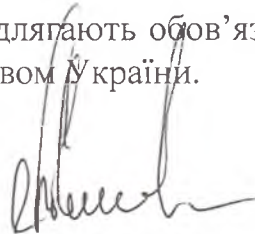 длягають обов’яз
вом України.